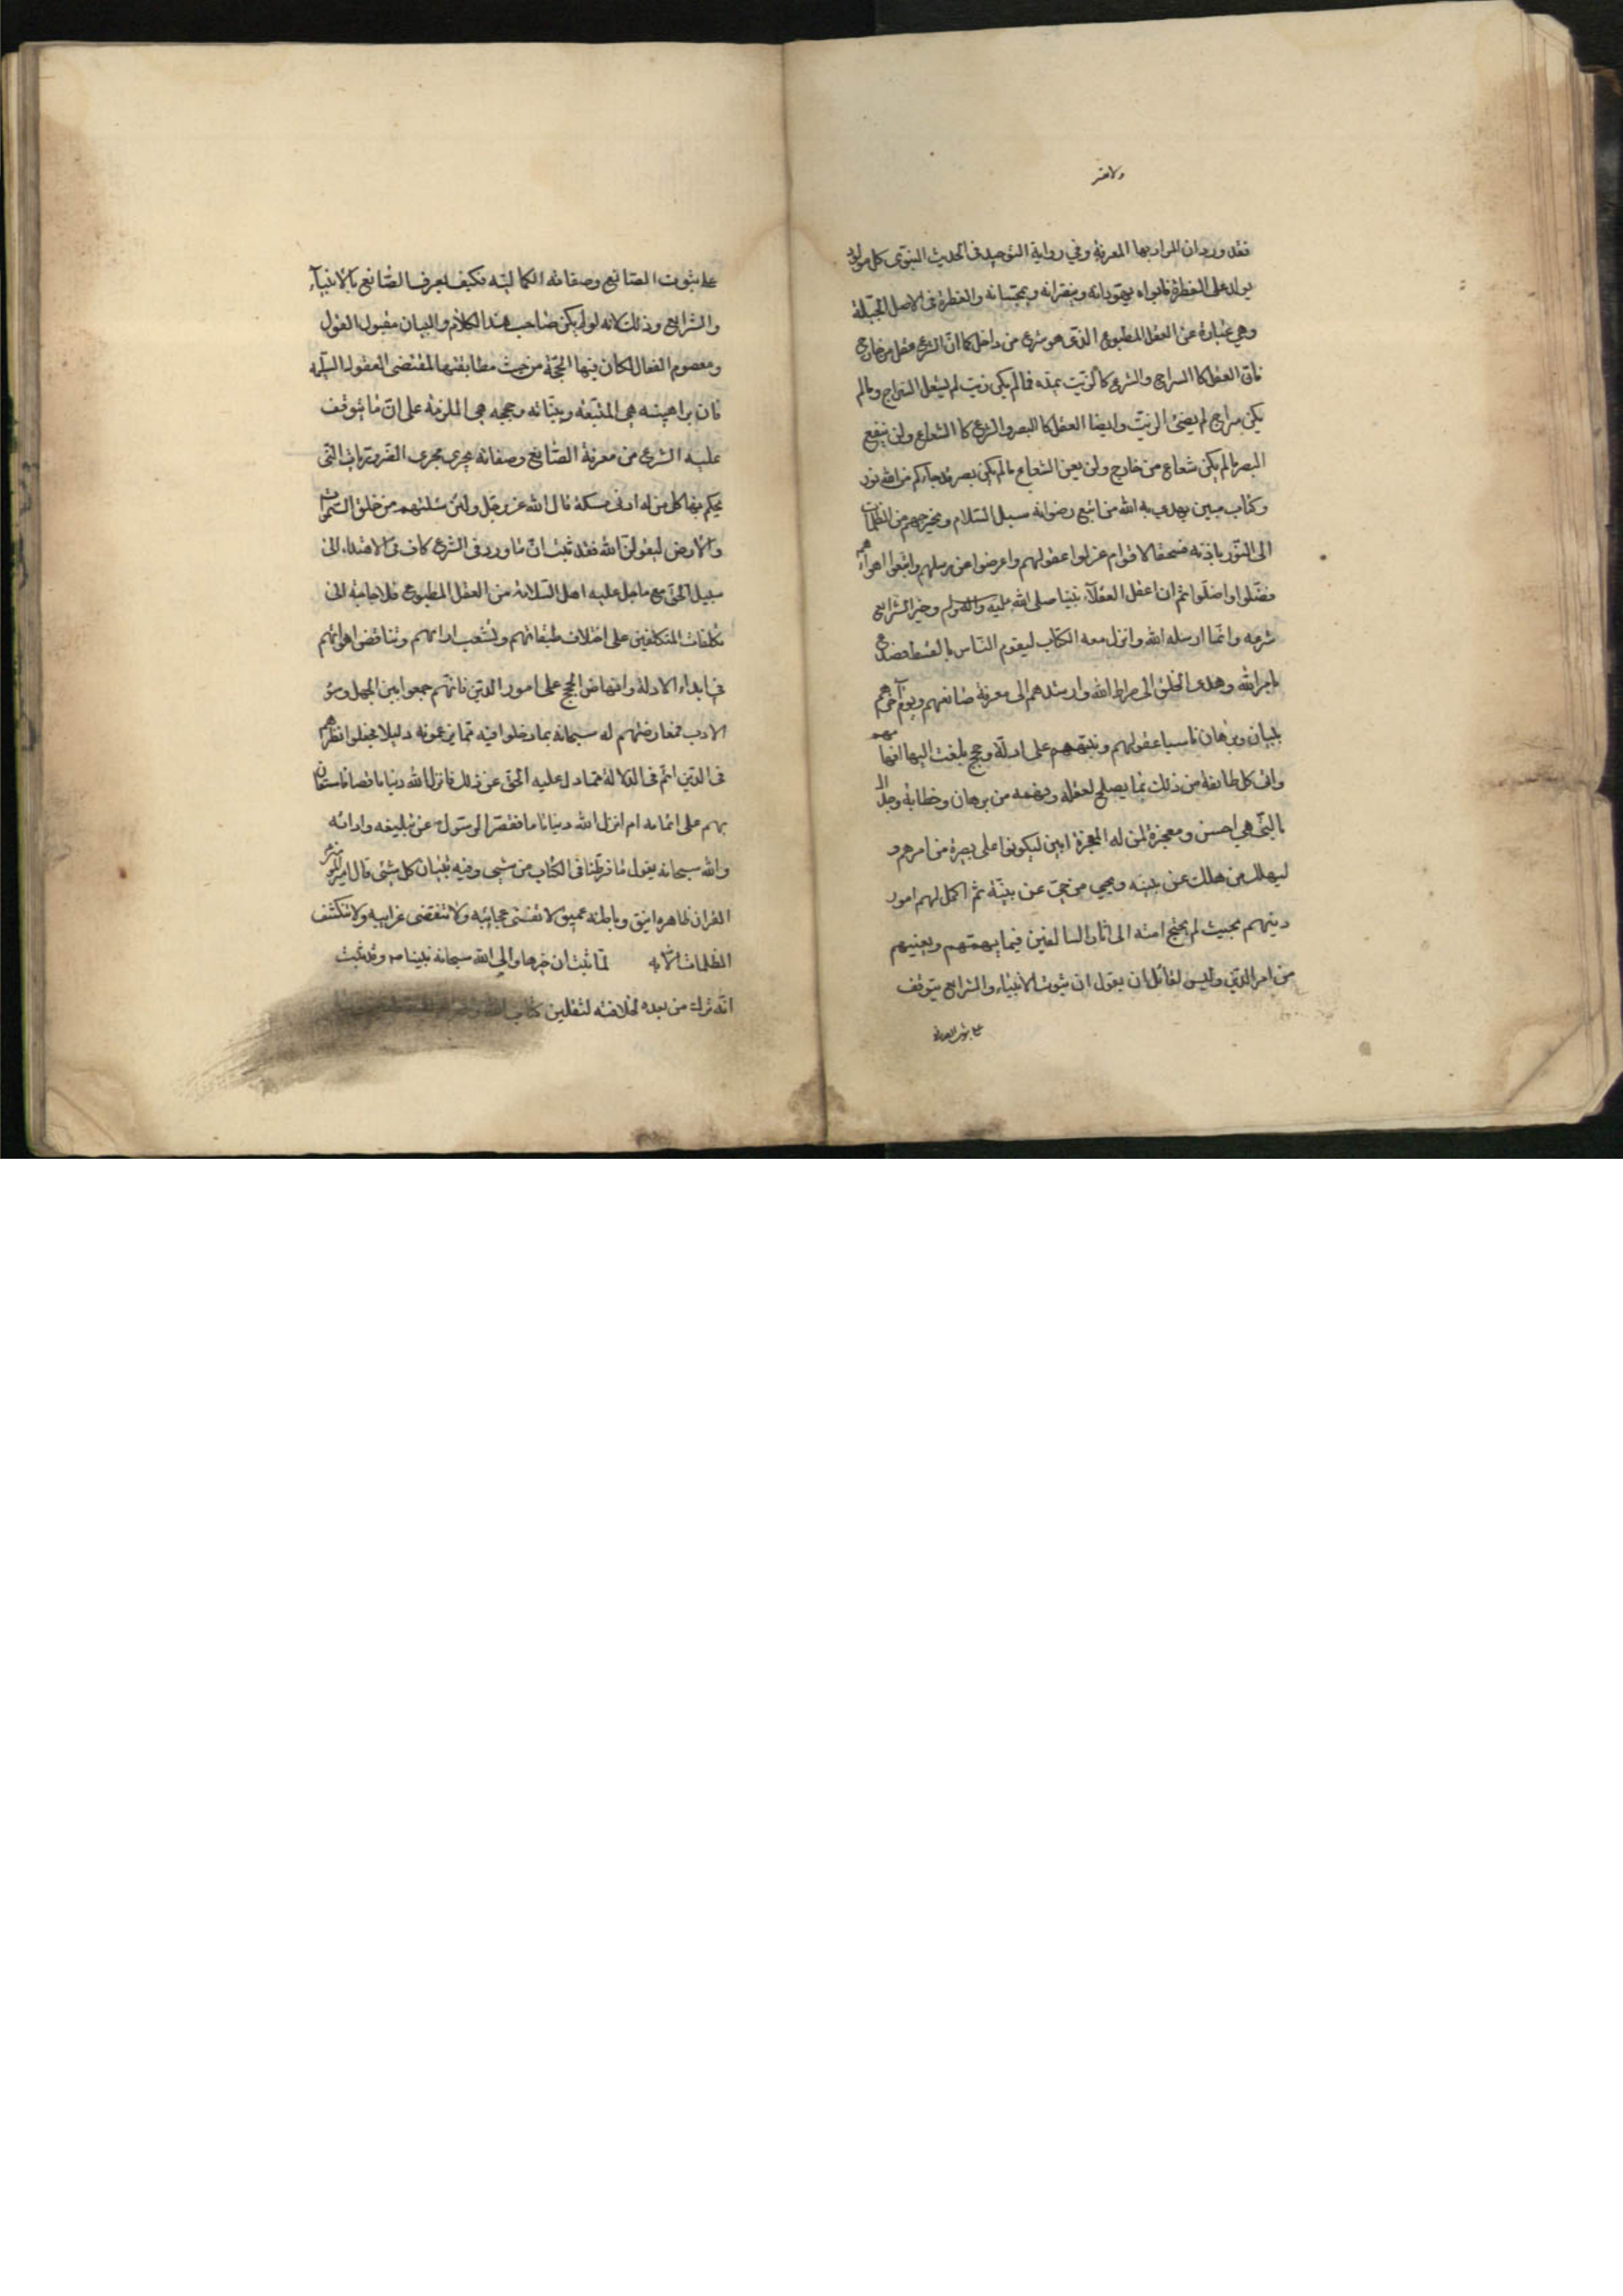 فقد ورد ان المراد بها المعرفة وفي رواية التوحيد فى الحديث النبوى كل مولود
يولد على الفطرة فابواه يهودانه وينصرانه ويمجسانه والفطرة فى الاصل الجبلة
وهي عبارة عن العقل المطبوع الذى هو شرع من داخل كما ان الشرع عقل من خارج
فان العقل كالسراج والشرع كالزيت يمده فمالم يكن زيت لم يشعل السراج ومالم
يكن سراج لم يضئ الزيت وايضا العقل كالبصر والشرع كالشعاع ولن ينفع
البصر مالم يكن شعاع من خارج ولن يغن الشعاع مالم يكن بصر قد جاءكم من الله نور
وكتاب مبين يهدى به الله من اتبع رضوانه سبل السلام ويخرجهم من الظلمات
الى النور باذنه فسحقا لاقوام عزلوا عقولهم واعرضوا عن رسلهم واتبعوا اهواءهم
فضلوا واضلوا ثم ان اعقل العقلاء نبينا صلى الله عليه واله وسلم وخير الشرايع
شرعه وانما ارسله الله وانزل معه الكتاب ليقوم الناس بالقسط فصدع
بامر الله وهدى الخلق الى صراط الله وارشدهم الى معرفة صانعهم ويوم آخرهم
ببيان وبرهان ناسبا عقولهم ونبههم على ادلة وحجج بلغت اليها افهامهم
واتى كل طايفة من ذلك بما يصلح لعقله وفهمه من برهان وخطابة وجدال
بالتى هي احسن ومعجزة لمن له المعجزة ابين ليكونوا على بصرة من امرهم و
ليهلك من هلك عن بينه ويحيى من حى عن بينة ثم اكمل لهم امور
دينهم بحيث لم يحتج امته الى اثار السالفين فيما يهمهم ويعنيهم
من امر الدين وليس لقائل ان يقول ان ثبوت الانبياء والشرايع يتوقف
على ثبوت الصانع
على ثبوت الصانع وصفاته الكمالية فكيف يعرف الصانع بالانبياء
والشرايع وذلك لانه لو لم يكن صاحب هذا الكلام والبيان مقبول القول
ومعصوم الفعال لكان فيها الحجة من حيث مطابقتها لمقتضى العقول السليمة
فان براهينه هى المتبعة وبيناته وحججه هى الملزمة على ان ما يتوقف
عليه الشرع من معرفة الصانع وصفاته يجرى مجرى الضروريات التى
يحكم بها كل من له ادنى مسكة قال الله عز وجل ولئن سئلتهم من خلق السموات
والارض ليقولن الله فقد ثبت ان ما ورد فى الشرع كاف فى الاهتداء الى
سبيل الحق مع ما جبل عليه اهل السلامة من العقل المطبوع فلا حاجة الى
تكلفات المتكلفين على اختلاف طبقاتهم وتشعب ارائهم وتناقض اهوائهم
فى ابداء الادلة وانهاض الحجج على امور الدين فانهم جمعوا بين الجهل وسوء
الادب فمعارضتهم له سبحانه بما دخلوا فيه مما يزعمونه دليلا فجعلوا نظرهم
فى الدين اتم فى الدلالة مما دل عليه الحق عن ذلك فانزل الله دينا ناقصا فاستعان
بهم على اتمامه ام انزل الله دينا تاما فقصر الرسول ص عن تبليغه وادائه
والله سبحانه يقول ما فرطنا فى الكتاب من شىء وفيه تبيان كل شئ قال امير المؤمنين
القران ظاهره انيق وباطنه عميق لا تفنى عجائبه ولا تنقضى غرايبه ولا تنكشف
الظلمات الا به لما ثبت ان خير هاد الى الله سبحانه نبينا ص وقد ثبت
انه ترك من بعده لخلافته لثقلين كتاب الله